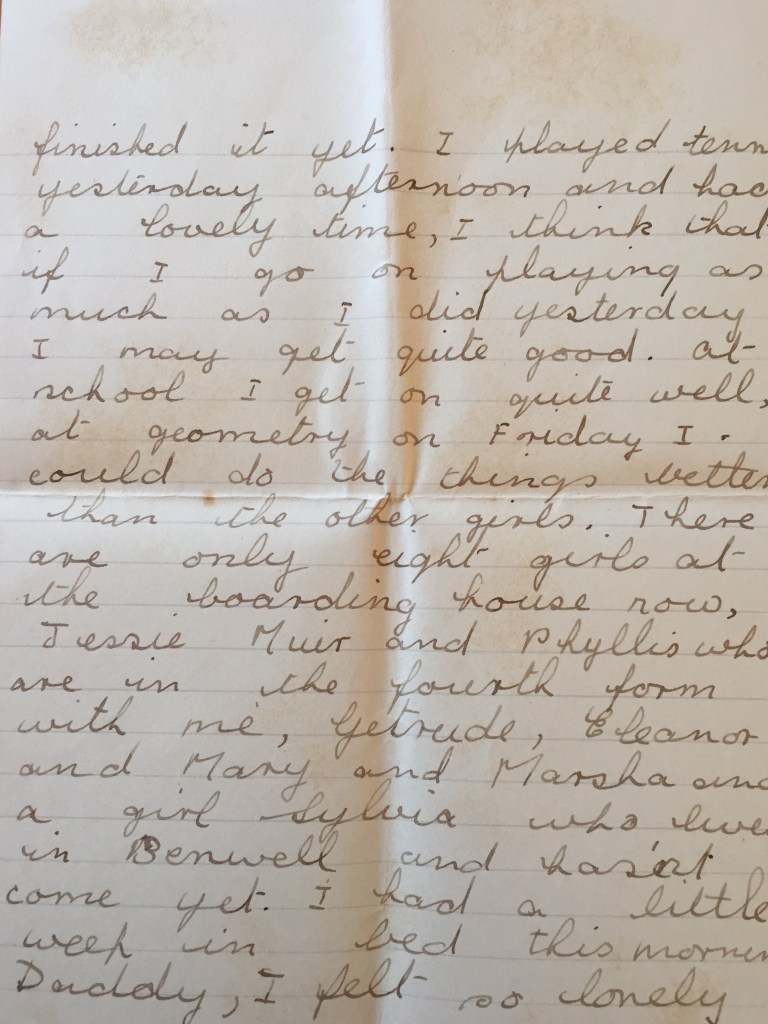 finished it yet. I played tenn
yesterday afternoon and had
a lovely time, I think that
if I go on playing as
much as I did yesterday
I may get quite good. at
school I get on quite well,
at geometry on Friday I.
could do the things better
than the other girls. There
are only eight girls at
the boarding house now,
Jessie Muir and Phyllis who
are in the fourth form
with me, Getrude, Eleanor
and Mary and Marsha and
a girl Sylvia who live
in Benwell and hasn't
come yet. I had a little
weep in bed this mornin
Daddy, I felt so lonely